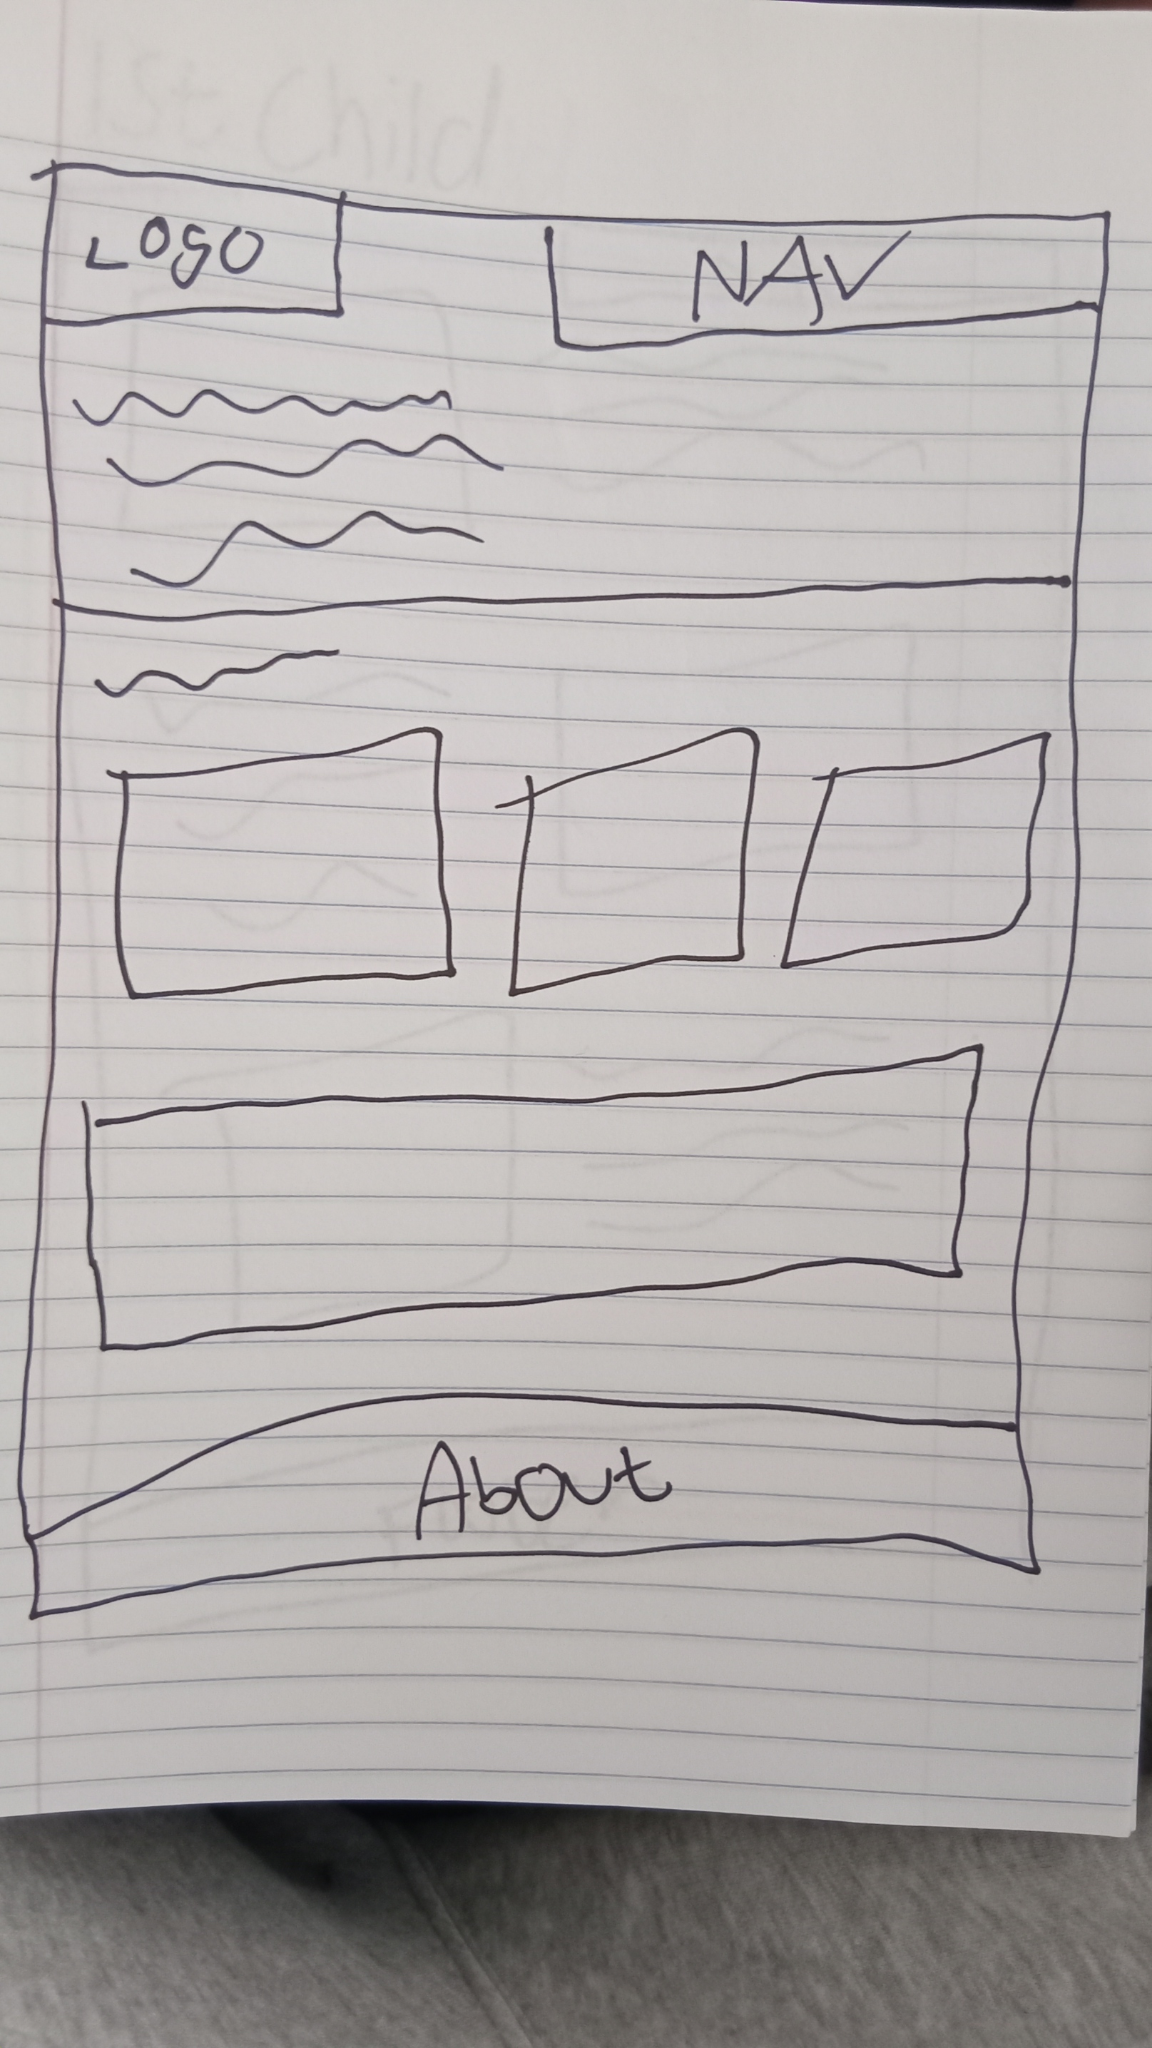 1st Child
Logo
NAV
About